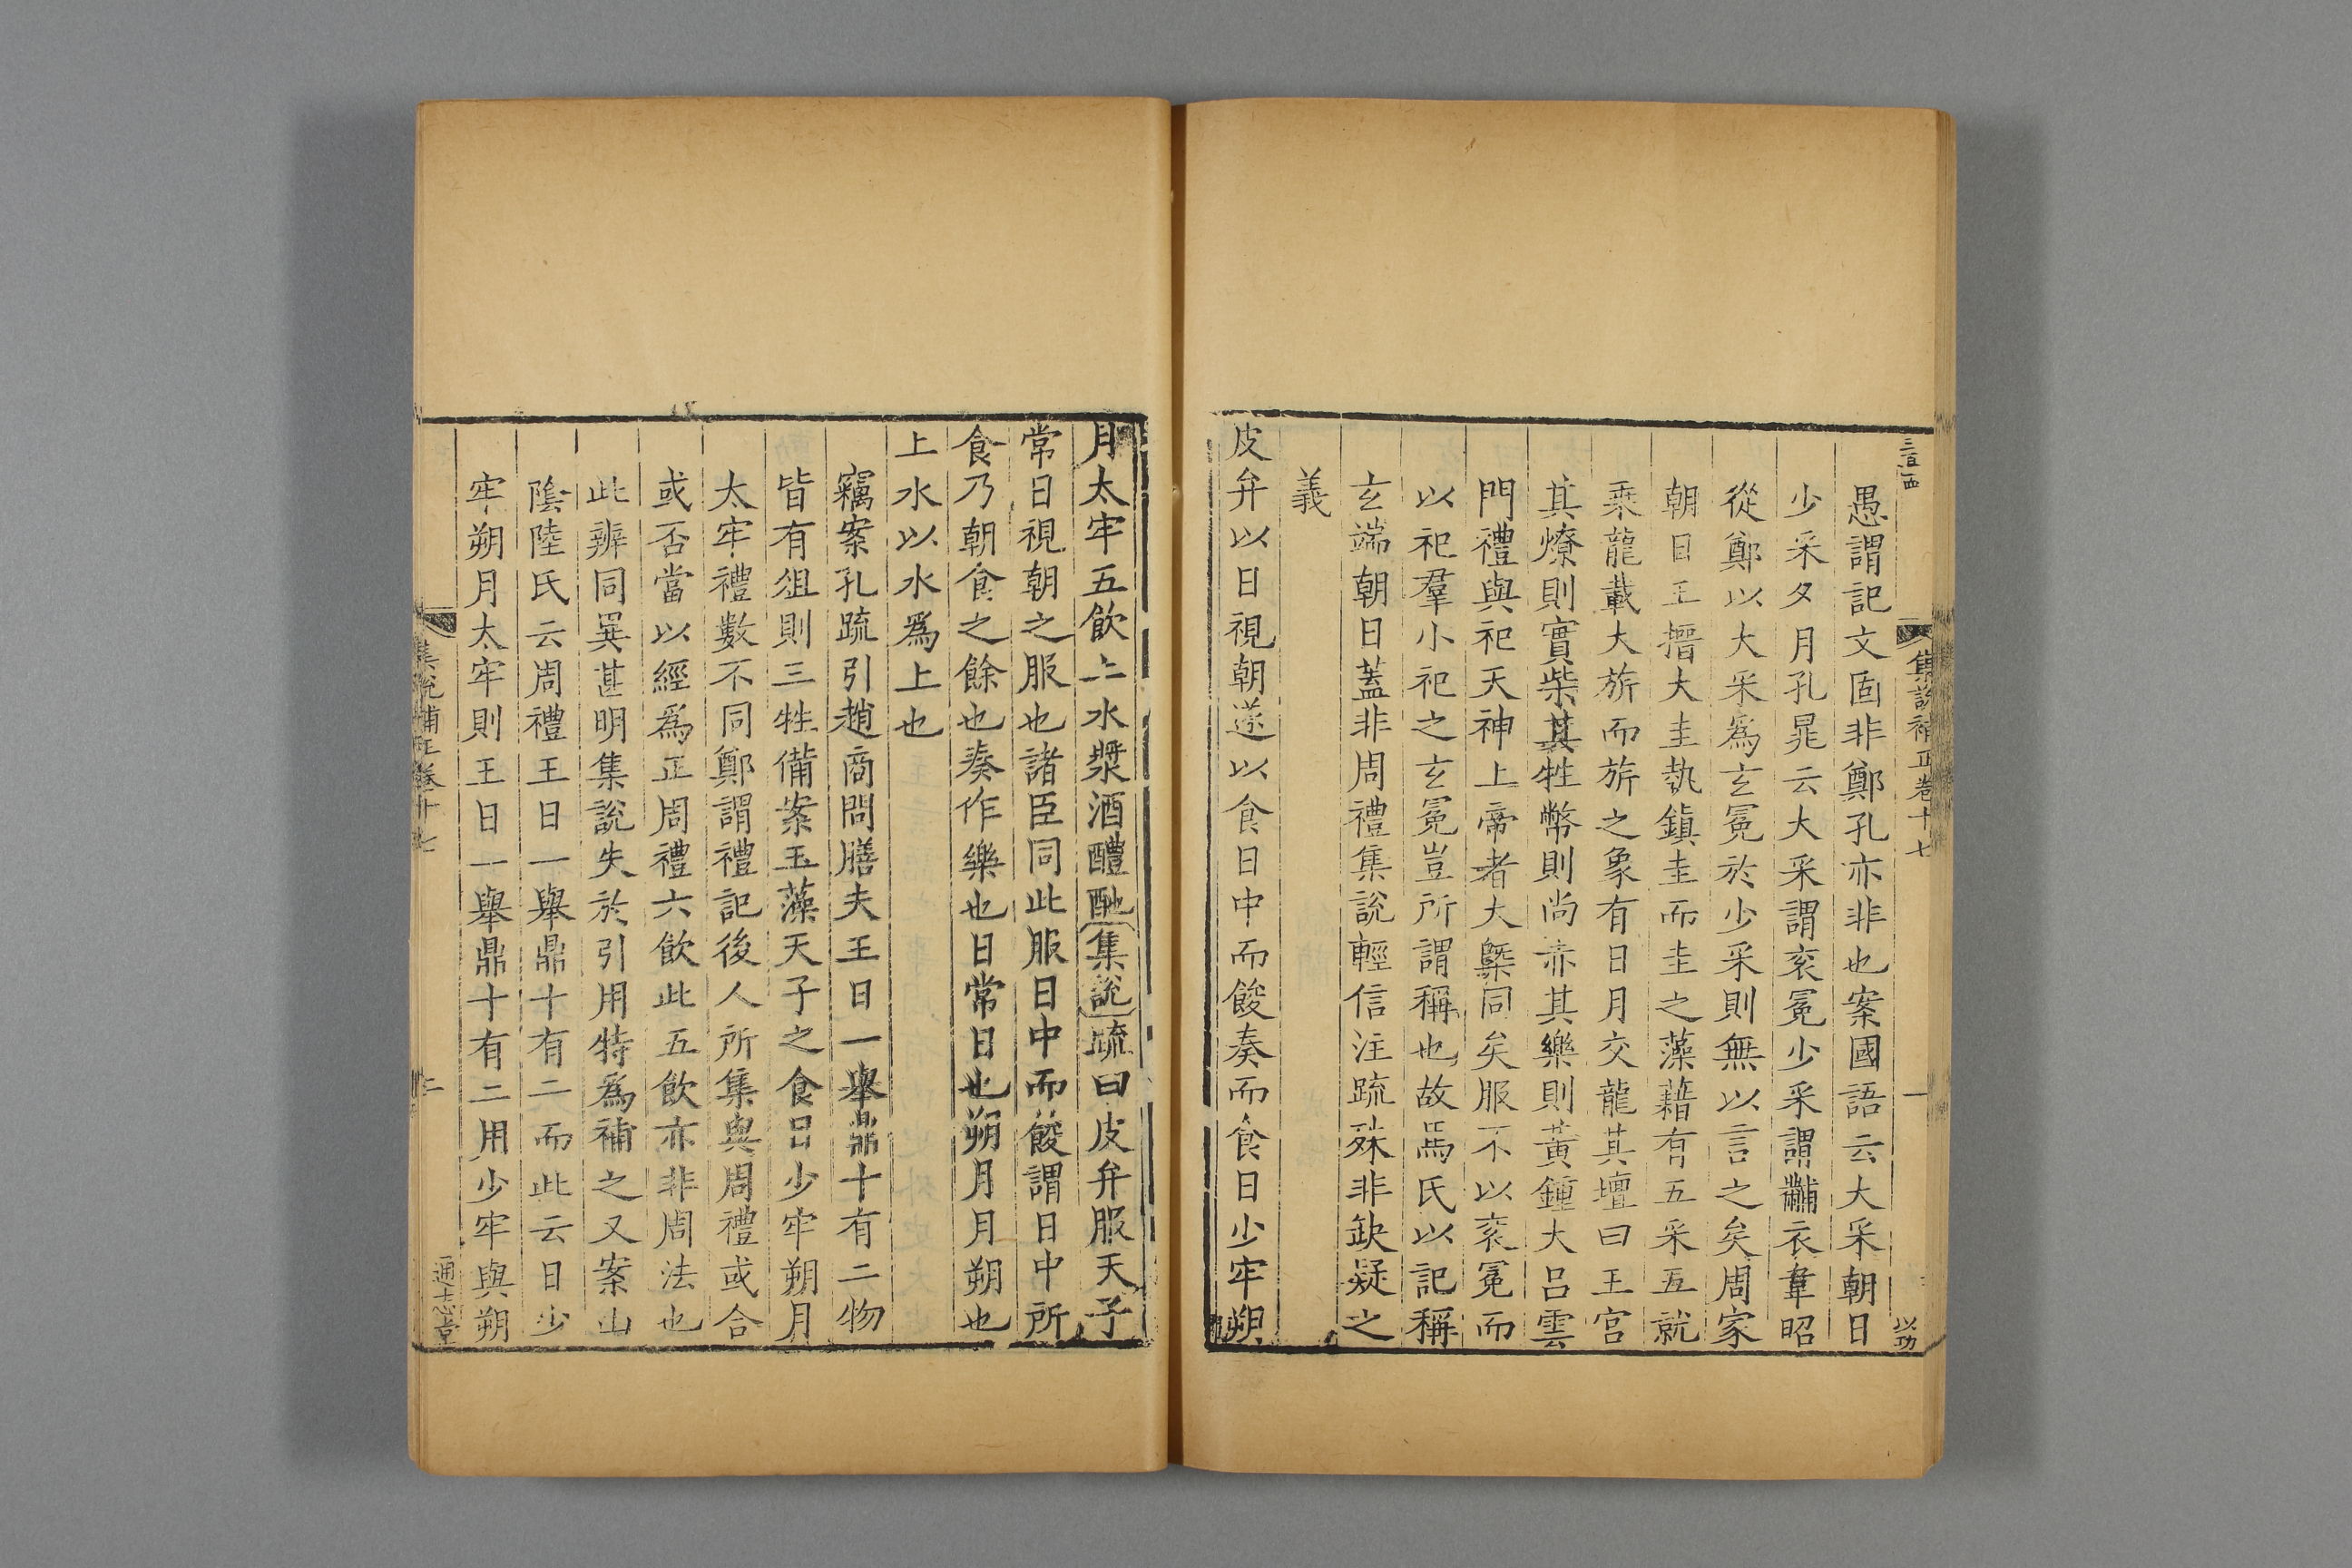 集說補正卷十七
一
愚謂記文固非鄭孔亦非也案國語云大采朝日
少采夕月孔晁云大采謂衮冕少采謂黼衣韋昭
從鄭以大采爲玄冕於少采則無以言之矣周家
朝日王搢大圭執鎮圭而圭之藻藉有五采五就
乘龍載大旂而旂之象有日月交龍其壇曰王宮
其燎則實柴其牲幣則尚赤其樂則黃鍾大呂雲
門禮與祀天神上帝者大槩同矣服不以衮冕而
以祀羣小祀之玄冕豈所謂稱也故馬氏以記稱
玄端朝日蓋非周禮集說輕信注疏殊非缺疑之
義
皮弁以日視朝遂以食日中而餕奏而食日少牢朔
月太牢五飲上水漿酒醴酏集說疏曰皮弁服天子
常日視朝之服也諸臣同此服日中而餕謂日中所
食乃朝食之餘也奏作樂也日常日也朔月月朔也
上水以水爲上也
竊案孔疏引趙商問膳夫王日一舉鼎十有二物
皆有俎則三牲備案玉藻天子之食日少牢朔月
太牢禮數不同鄭謂禮記後人所集與周禮或合
或否當以經爲正周禮六飲此五飲亦非周法也
此辨同異甚明集說失於引用特爲補之又案山
陰陸氏云周禮王日一舉鼎十有二而此云日少
牢朔月太牢則王日一舉鼎十有二用少牢與朔
集說補正卷十七
二
通志堂